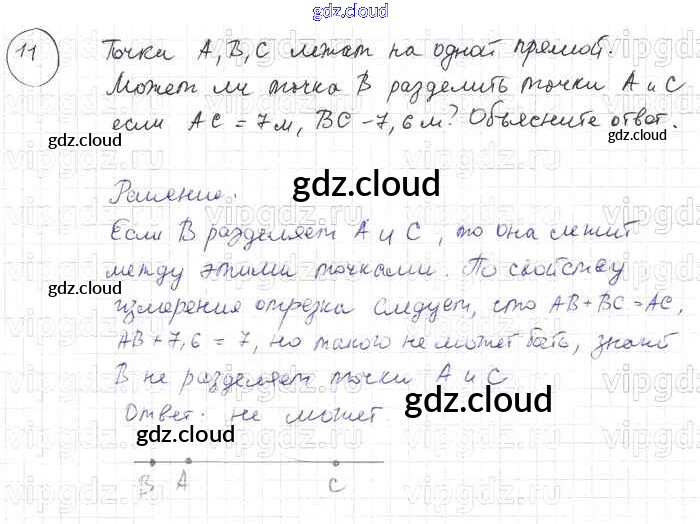 gdz.cloud
11 Точки A, B, C лежат на одной прямой.
Может ли точка B разделить точки A и C
если AC = 7м, BC - 7,6 м? Объясните ответ.
gdz.cloud
gdz.cloud
Решение:
gdz.cloud
Если B разделяет A и C, то она лежит
между этими точками. По свойству
gdz.cloud
измерения отрезка следует, что AB + BC = AC,
AB + 7,6 = 7, но такого не может быть, значит
B не разделяет точки A и C
Ответ: не может
gdz.cloud
gdz.cloud
B A C